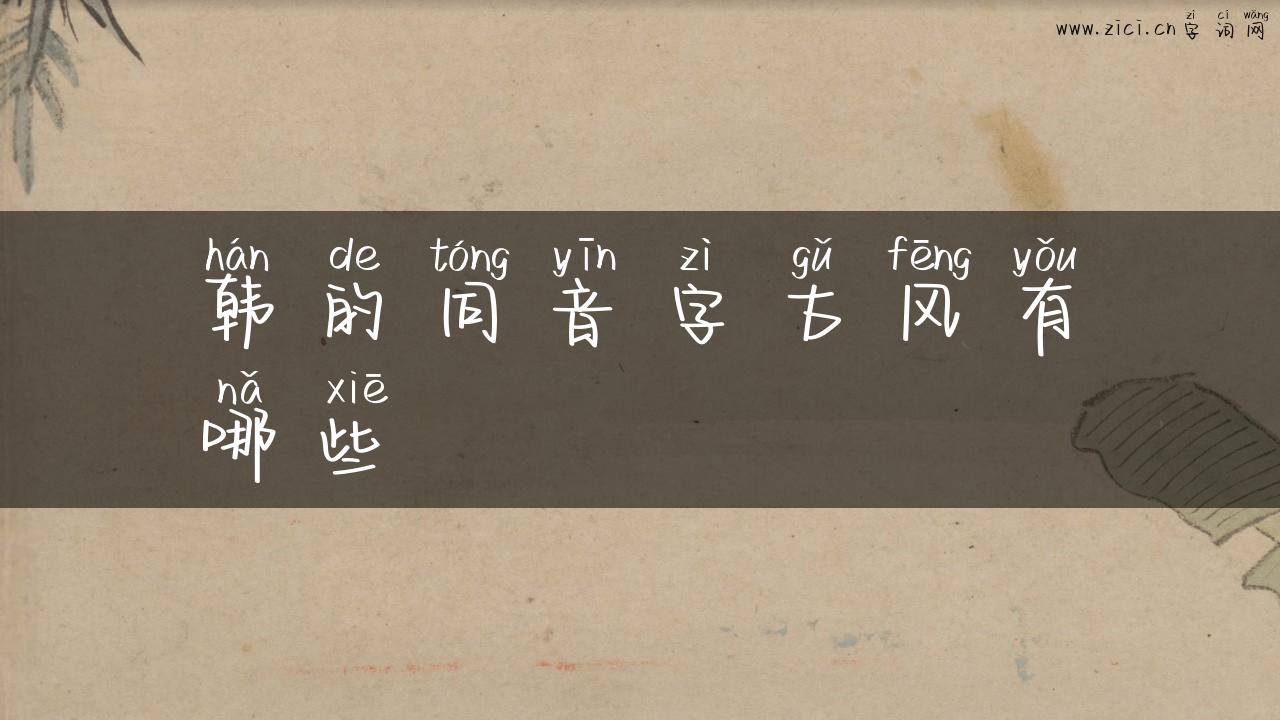 zì cí wǎng
www.zici.cn 字 词 网
hán de tóng yīn zì gǔ fēng yǒu
韩 的 同 音 字 古 风 有
nǎ xiē
哪 些